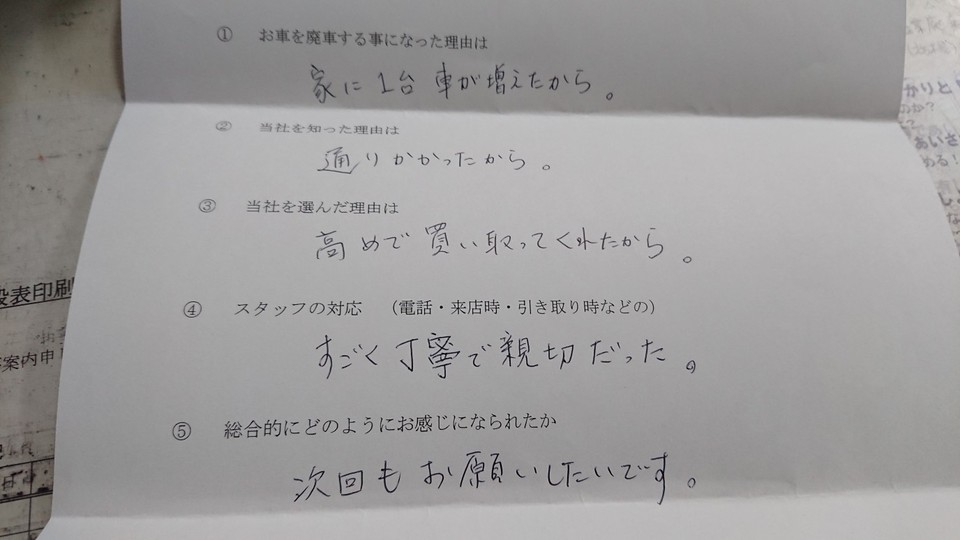 ① お車を廃車する事になった理由は
家に1台車が増えたから。
② 当社を知った理由は
通りかかったから。
③ 当社を選んだ理由は
高めで買い取ってくれたから。
④ スタッフの対応 （電話・来店時・引き取り時などの）
すごく丁寧で親切だった。
⑤ 総合的にどのようにお感じになられたか
次回もお願いしたいです。
表印刷
案内申
かりと
のか？
あいさ
める！